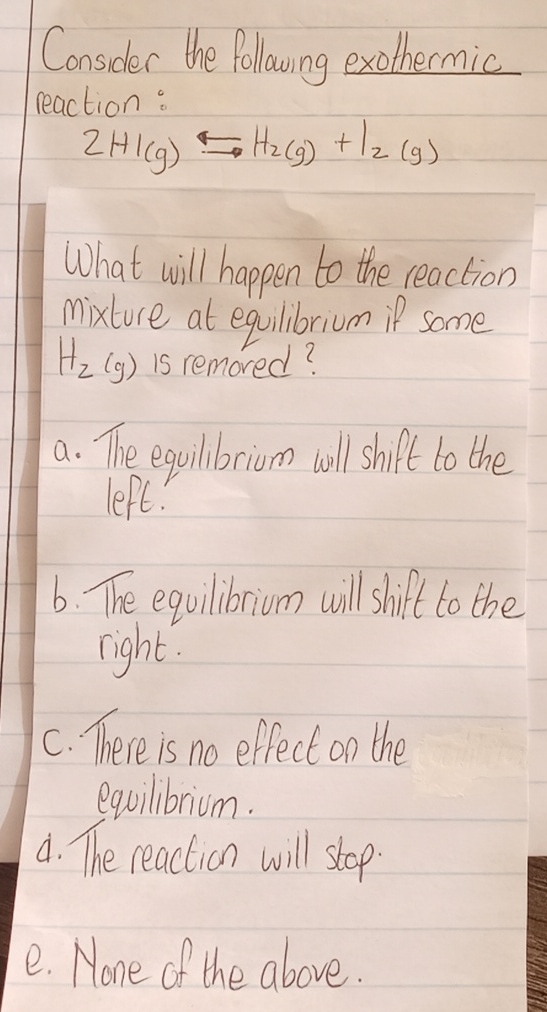 Consider the following exothermic
reaction :
2HI(g) ⇆ H2(g) + I2 (g)
What will happen to the reaction
mixture at equilibrium if some
H2 (g) is removed ?
a. The equilibrium will shift to the
left.
b. The equilibrium will shift to the
right.
c. There is no effect on the
equilibrium.
d. The reaction will stop.
e. None of the above.